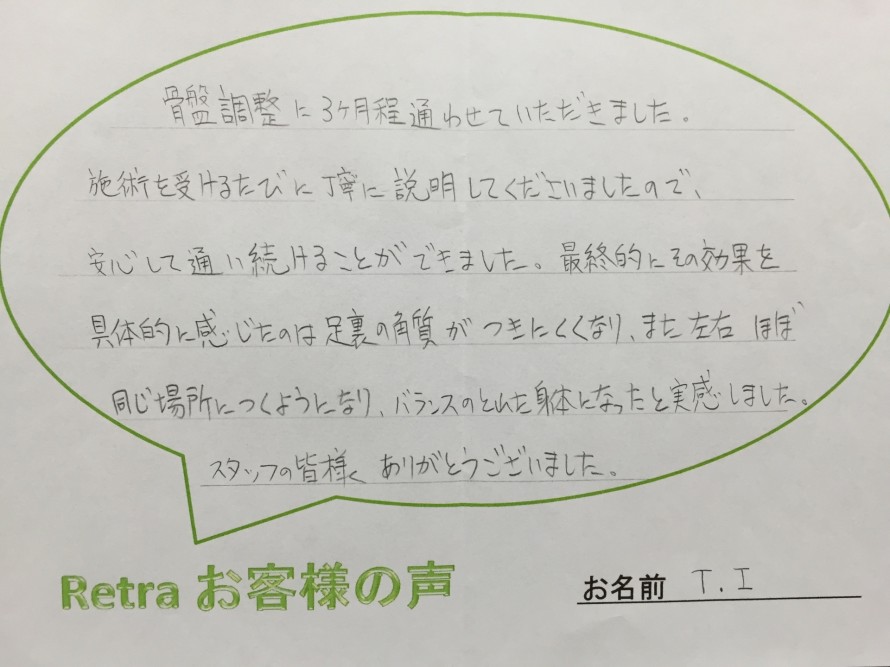 骨盤調整に3ヶ月程通わせていただきました。
施術を受けるたびに丁寧に説明してくださいましたので、
安心して通い続けることができました。最終的にその効果を
具体的に感じたのは足裏の角質がつきにくくなり、また左右ほぼ
同じ場所につくようになり、バランスのとれた身体になったと実感しました。
スタッフの皆様ありがとうございました。
Retra お客様の声
お名前 T.I